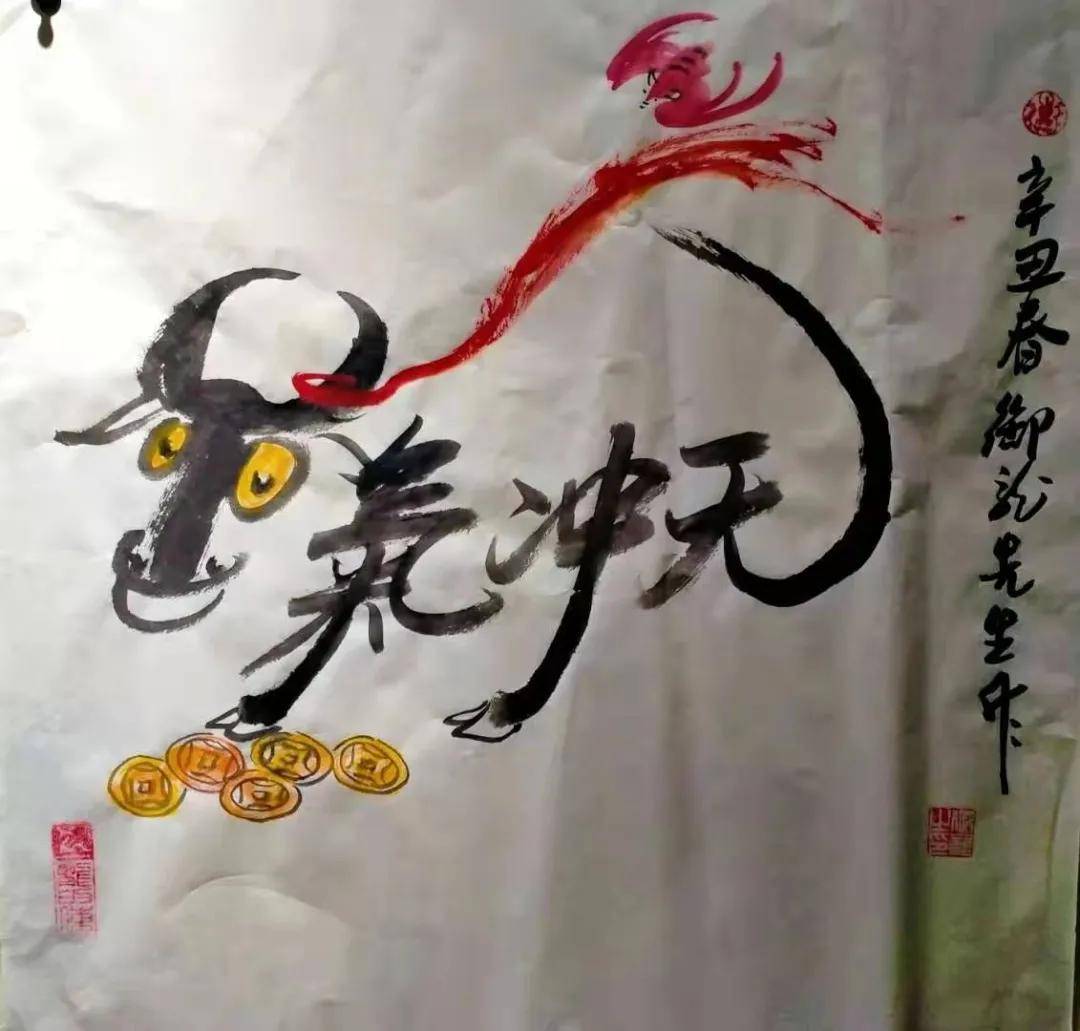 氣冲天
辛丑春御龙先生作